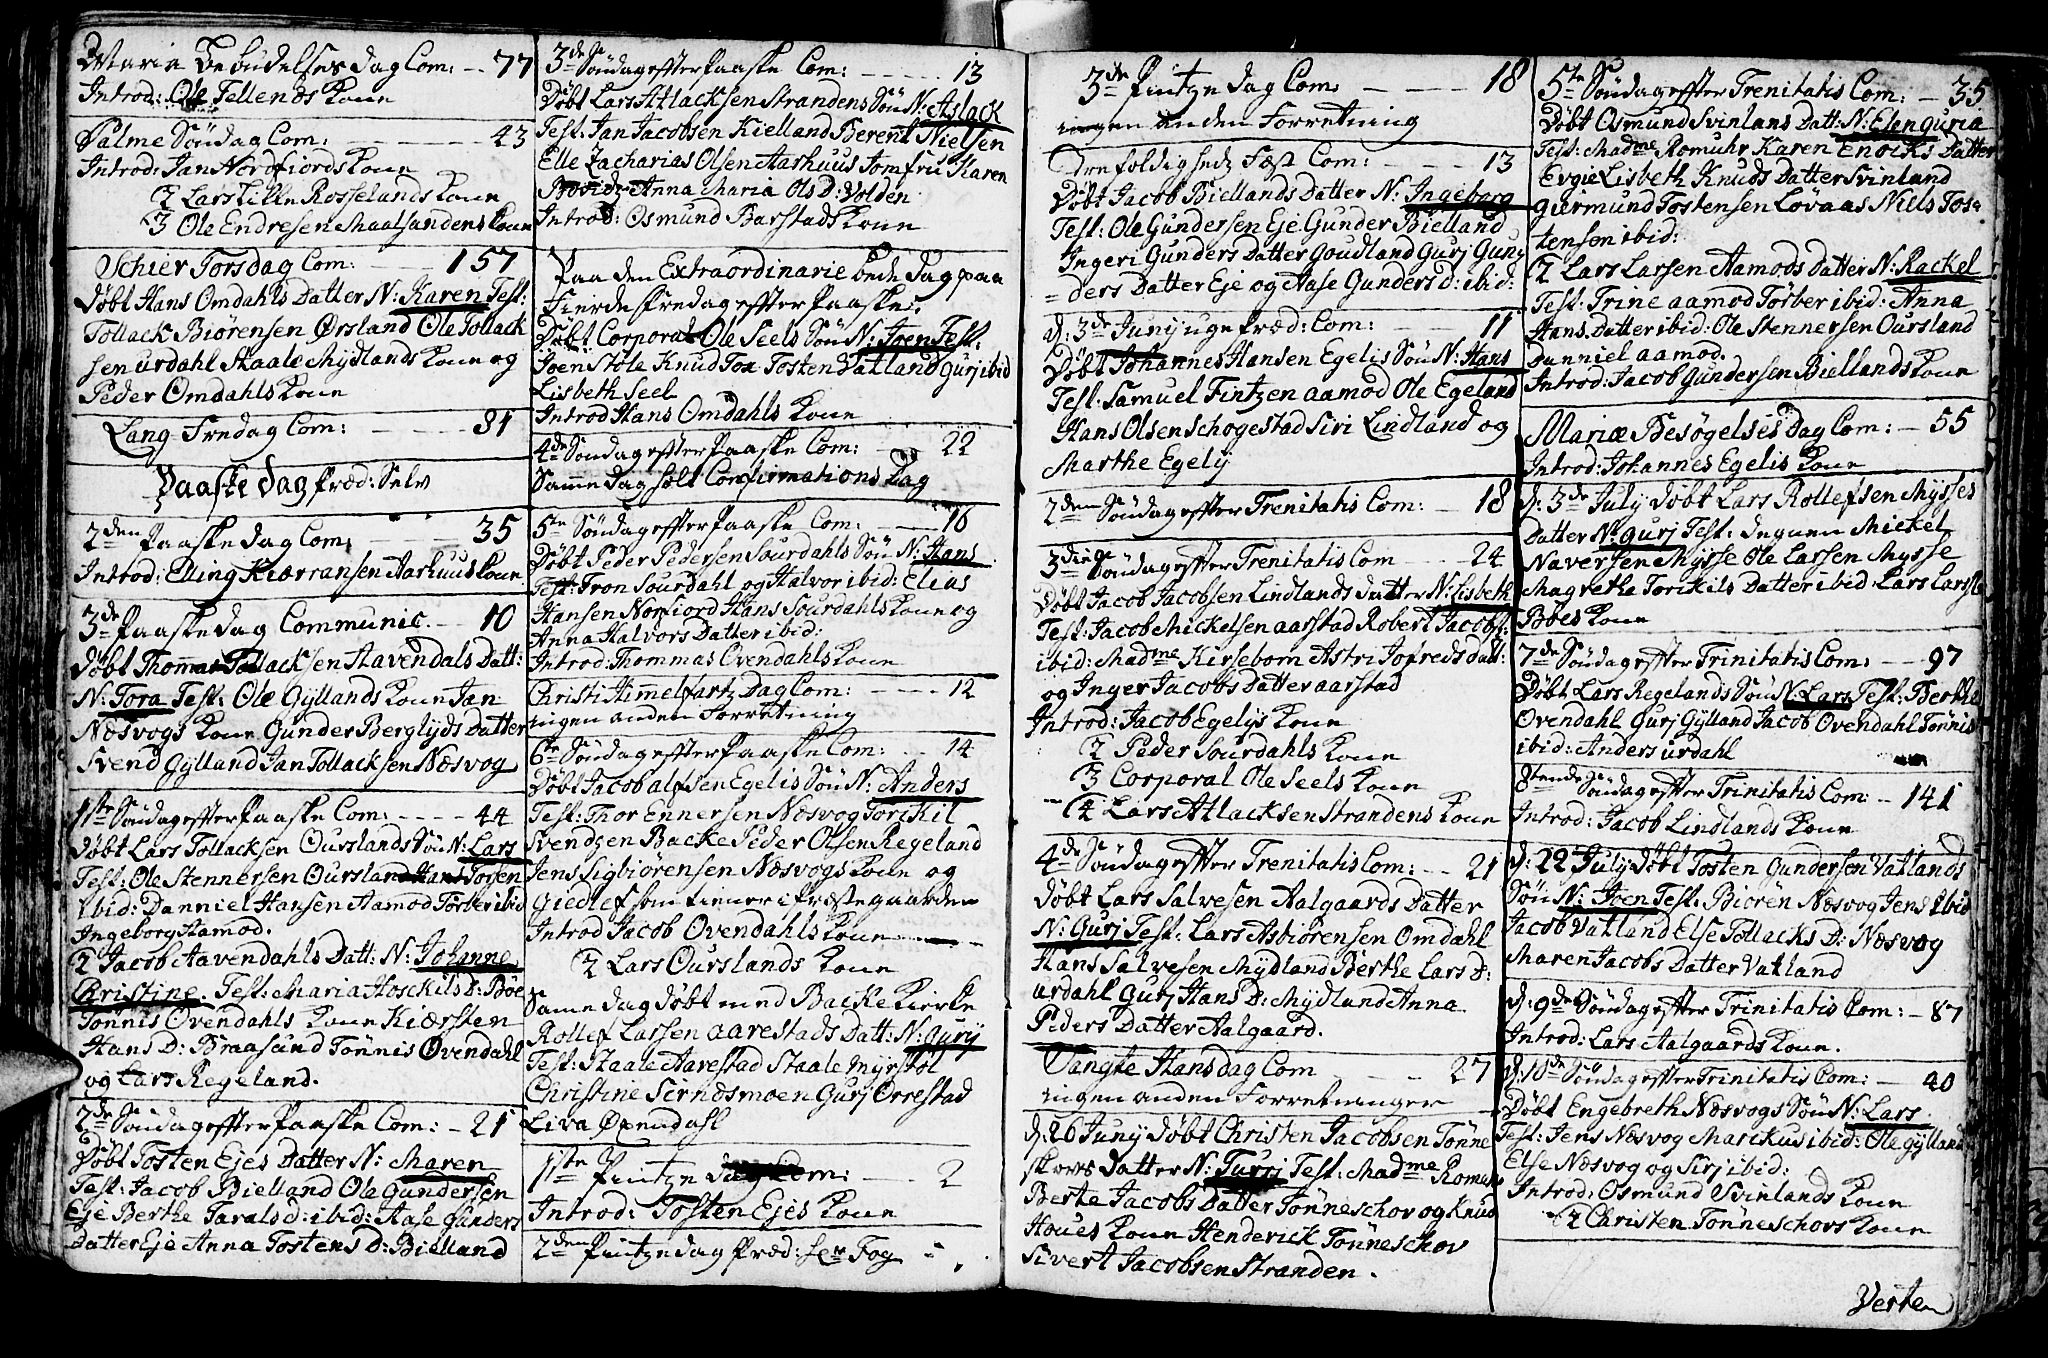 Maria Bebudelses dag Com: -- 77
Introd: Ole Tellends Kone
Palme Søndag Com: ---- 43
Introd: Jan Nordfiords Kone
2 Lars Lille Rosselands Kone
3 Ole Endresen Maalsandens Kone
Schier Torsdag Com: --- 157
Døbt Hans Omdahls Datter N: Karen Test:
Tollack Biørensen Ørsland Ole Tollack
sen urdahl Staale Mydlands Kone og
Peder Omdahls Kone
Lang Fredag Com: ---- 31
Paaske dag Præd: Selv
2den Paaske dag Com: --- 35
Introd: Elling Kiørransen Aarhuus Kone
3de Paaske dag Communic. -- 10
Døbt Thommas Tollacksen Stavendals Datt:
N: Tora Test: Ole Gyllands Kone Jan
Næsvogs Kone Gunder Berglyds Datter
Svend Gylland Jan Tollacksen Næsvog
1ste Søndag effter Paaske Com: ---- 44
Døbt Lars Tollacksen Ourslands Søn N: Lars
Test: Ole Stennersen Oursland Hans Torsen
ibid: Danniel Hansen Aamod Torber ibid
Ingeborg Aamod.
2 Jacob Aavendahls Datt: N: Johanne
Christine. Test: Maria Hosckils D: Bøe
Tönnis Ovendahls Kone Kiersten
Hans D: Braasund Tönnis Ovendahl
og Lars Regeland.
2de Søndag effter Paaske Com: - 21
Døbt Tosten Ejes Datter N: Maren
Test: Jacob Bielland Ole Gundersen
Eje Berthe Taralsd: ibid: Aase Gunders
Datter Eje Anna Tostens D: Bielland
3de Søndag effter Paaske Com: ----- 13
Døbt Lars Atlacksen Strandens Søn N: Aslack
Test: Jan Jacobsen Kielland Berent Nielsen
Elle Zacharias Olsen Aarhuus Jomfru Karen
Anna Maria Ols D: Volden
Introd: Osmund Barstads Kone
Paa den Extraordinarie bede dag paa
Fierde fredag effter Paaske:
Døbt Corporal Ole Seels Søn N: Joen Test:
Joen Støle Knud Tox Tosten Vatland Gurj ibid
Lisbeth Seel
Introd Hans Omdahls Kone
4de Søndag effter Paaske Com: -- 22
Samme dag holt Confirmations Dag
5te Søndag effter Paaske Com: --- 16
Døbt Peder Pedersen Sourdahls Søn N: Hans
Test: Tron Sourdahl og Halvor ibid: Elias
Hansen Norfiord Hans Sourdahls Kone og
Anna Halvors Datter ibid:
Introd: Thommas Ovendahls Kone
Christi Himmelfartz Dag Com: ---- 12
ingen anden Forretning
6te Søndag effter Paaske Com: -- 14
Døbt Jacob alfsen Egelis Søn N: Anders
Test: Thor Ennersen Næsvog Torckil
Svendzen Backe Peder Olsen Regeland
Jens Sigbiörensen Næsvogs Kone og
Giedlef som tiener i Præstegaarden
Introd Jacob Ovendahls Kone
2 Lars Ourslands Kone
Same dag døbt med Backe Kirke
Rollef Larsen aarestads Datt: N: Gurj
Test: Staale Aarestad Staale Myrstøl
Christine Sirndsmoen Gurj Orrestad
Liva Ovendahl
1ste Pintze dag Com: --- 2
Introd: Tosten Ejes Kone
2den Pintze dag Præd: Hr Fog
3de Pintze dag Com: --- 18
ingen anden Forretning
Drefoldigheds Fæst Com: --- 13
Døbt Jacob Biellands Datter N: Ingeborg
Test: Ole Gundersen Eje Gunder Bielland
Ingeri Gunders Datter Goudland Gurj Gun
=ders Datter Eje og Aase Gunders D: ibid:
d: 3de Junij ugepræd: Com: --- 11
Døbt Johannes Hansen Egelis Søn N: Hans
Test: Samuel Fintzen aamod Ole Egeland
Hans Olsen Schogestad Siri Lindland og
Marthe Egelij
2den Søndag effter Trenitatis Com: - 18
3die Søndag effter Trenitatis Com --- 24
Døbt Jacob Jacobsen Lindlands datter N: Lisbeth
Test: Jacob Mickelsen aarstad Robert Jacobs:
ibid: Madme Kirsebom Astri Jofreds datt:
og Inger Jacobs Datter aarstad
Introd: Jacob Egelijs Kone
2 Peder Sourdahls Kone
3 Corporal Ole Seels Kone
4 Lars Atlacksen Strandens Kone
4de Søndag effter Trenitatis Com: -- 21
Døbt Lars Salvesen Aalgaards Datter
N: Gurj Test: Lars Asbiörensen Omdahl
Hans Salvesen Mydland Berthe Lars D:
urdahl Gurj Hans D: Mydland Anna
Peders Datter Aalgaard.
Sangte Hans dag Com --- 27
ingen anden Forretninger
d: 26 Junij døbt Christen Jacobsen Tönne
skovs Datter N: Gurj Test: Madme Romuhr
Berte Jacobs Datter Tönneschov og Knud
Houes Kone Henderick Tönneschov
Sivert Jacobsen Stranden.
5te Søndag effter Trenitatis Com: - 35
Døbt Osmund Svinlans Datt: N: Elen Guria
Test: Madme Romuhr Karen Enocks Datter
Evgie Lisbeth Knuds Datter Svinland
Giermund Tostensen Lövaas Niels Tos=
tensen ibid:
2 Lars Larsen Aamods Datter N: Rackel
Test: Trine aamod Törber ibid: Anna
Hans Datter ibid: Ole Stennersen Oursland
Danniel aamod.
Introd: Jacob Gundersen Biellands Kone
Mariæ Besøgelses Dag Com: - 55
Introd: Johannes Egelis Kone
d: 3de July døbt Lars Rollefsen Mysses
Datter N: Gurj Test: Degnen Mickel
Naversen Mysse Ole Larsen Mysse
Magretha Torckils Datter ibid Lars Larss
Böes Kone
7de Søndag effter Trinitatis Com: -- 97
Døbt Lars Regelands Søn N: Lars Test: Berthe
Ovendahl Gurj Gylland Jacob Ovendahl Tönnis
ibid: Anders urdahl
8tende Søndag effter Trinitatis Com: -- 141
Introd: Jacob Lindlands Kone
d: 22 July Døbt Tosten Gundersen Vatlands
Søn N: Joen Test: Biören Næsvog Jens ibid
Jacob Vatland Else Tollacks D: Næsvog
Maren Jacobs Datter Vatland
d: 9de Søndag effter Trinitatis Com: - 87
Introd: Lars Aalgaards Kone.
d: 10de Søndag effter Trinitatis Com: - 40
Døbt Engebreth Næsvogs Søn N: Lars
Test: Jens Næsvog Marckus ibid: Ole Gylland
Else Næsvog og Sirj ibid:
Introd: Osmund Svinlands Kone
2 Christen Tönneschovs Kone
Verte